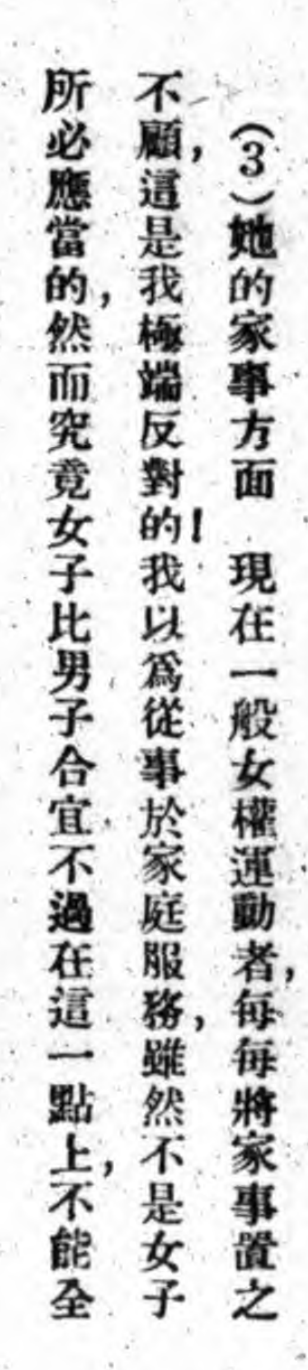 (3)她的家事方面 現在一般女權運動者,每每將家事置之
不顧,這是我極端反對的!我以爲從事於家庭服務,雖然不是女子
所必應當的,然而究竟女子比男子合宜不過在這一點上,不能全